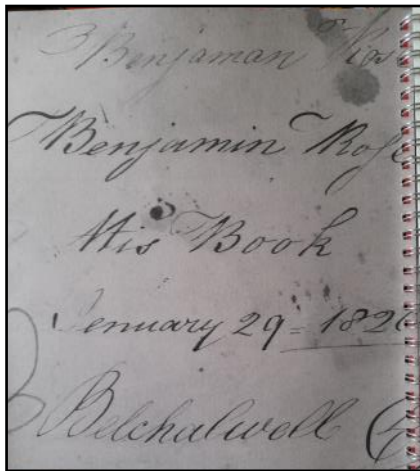 Benjaman Rose
Benjamin Rose
His Book
Jenuary 29 = 1820
Belchalwell